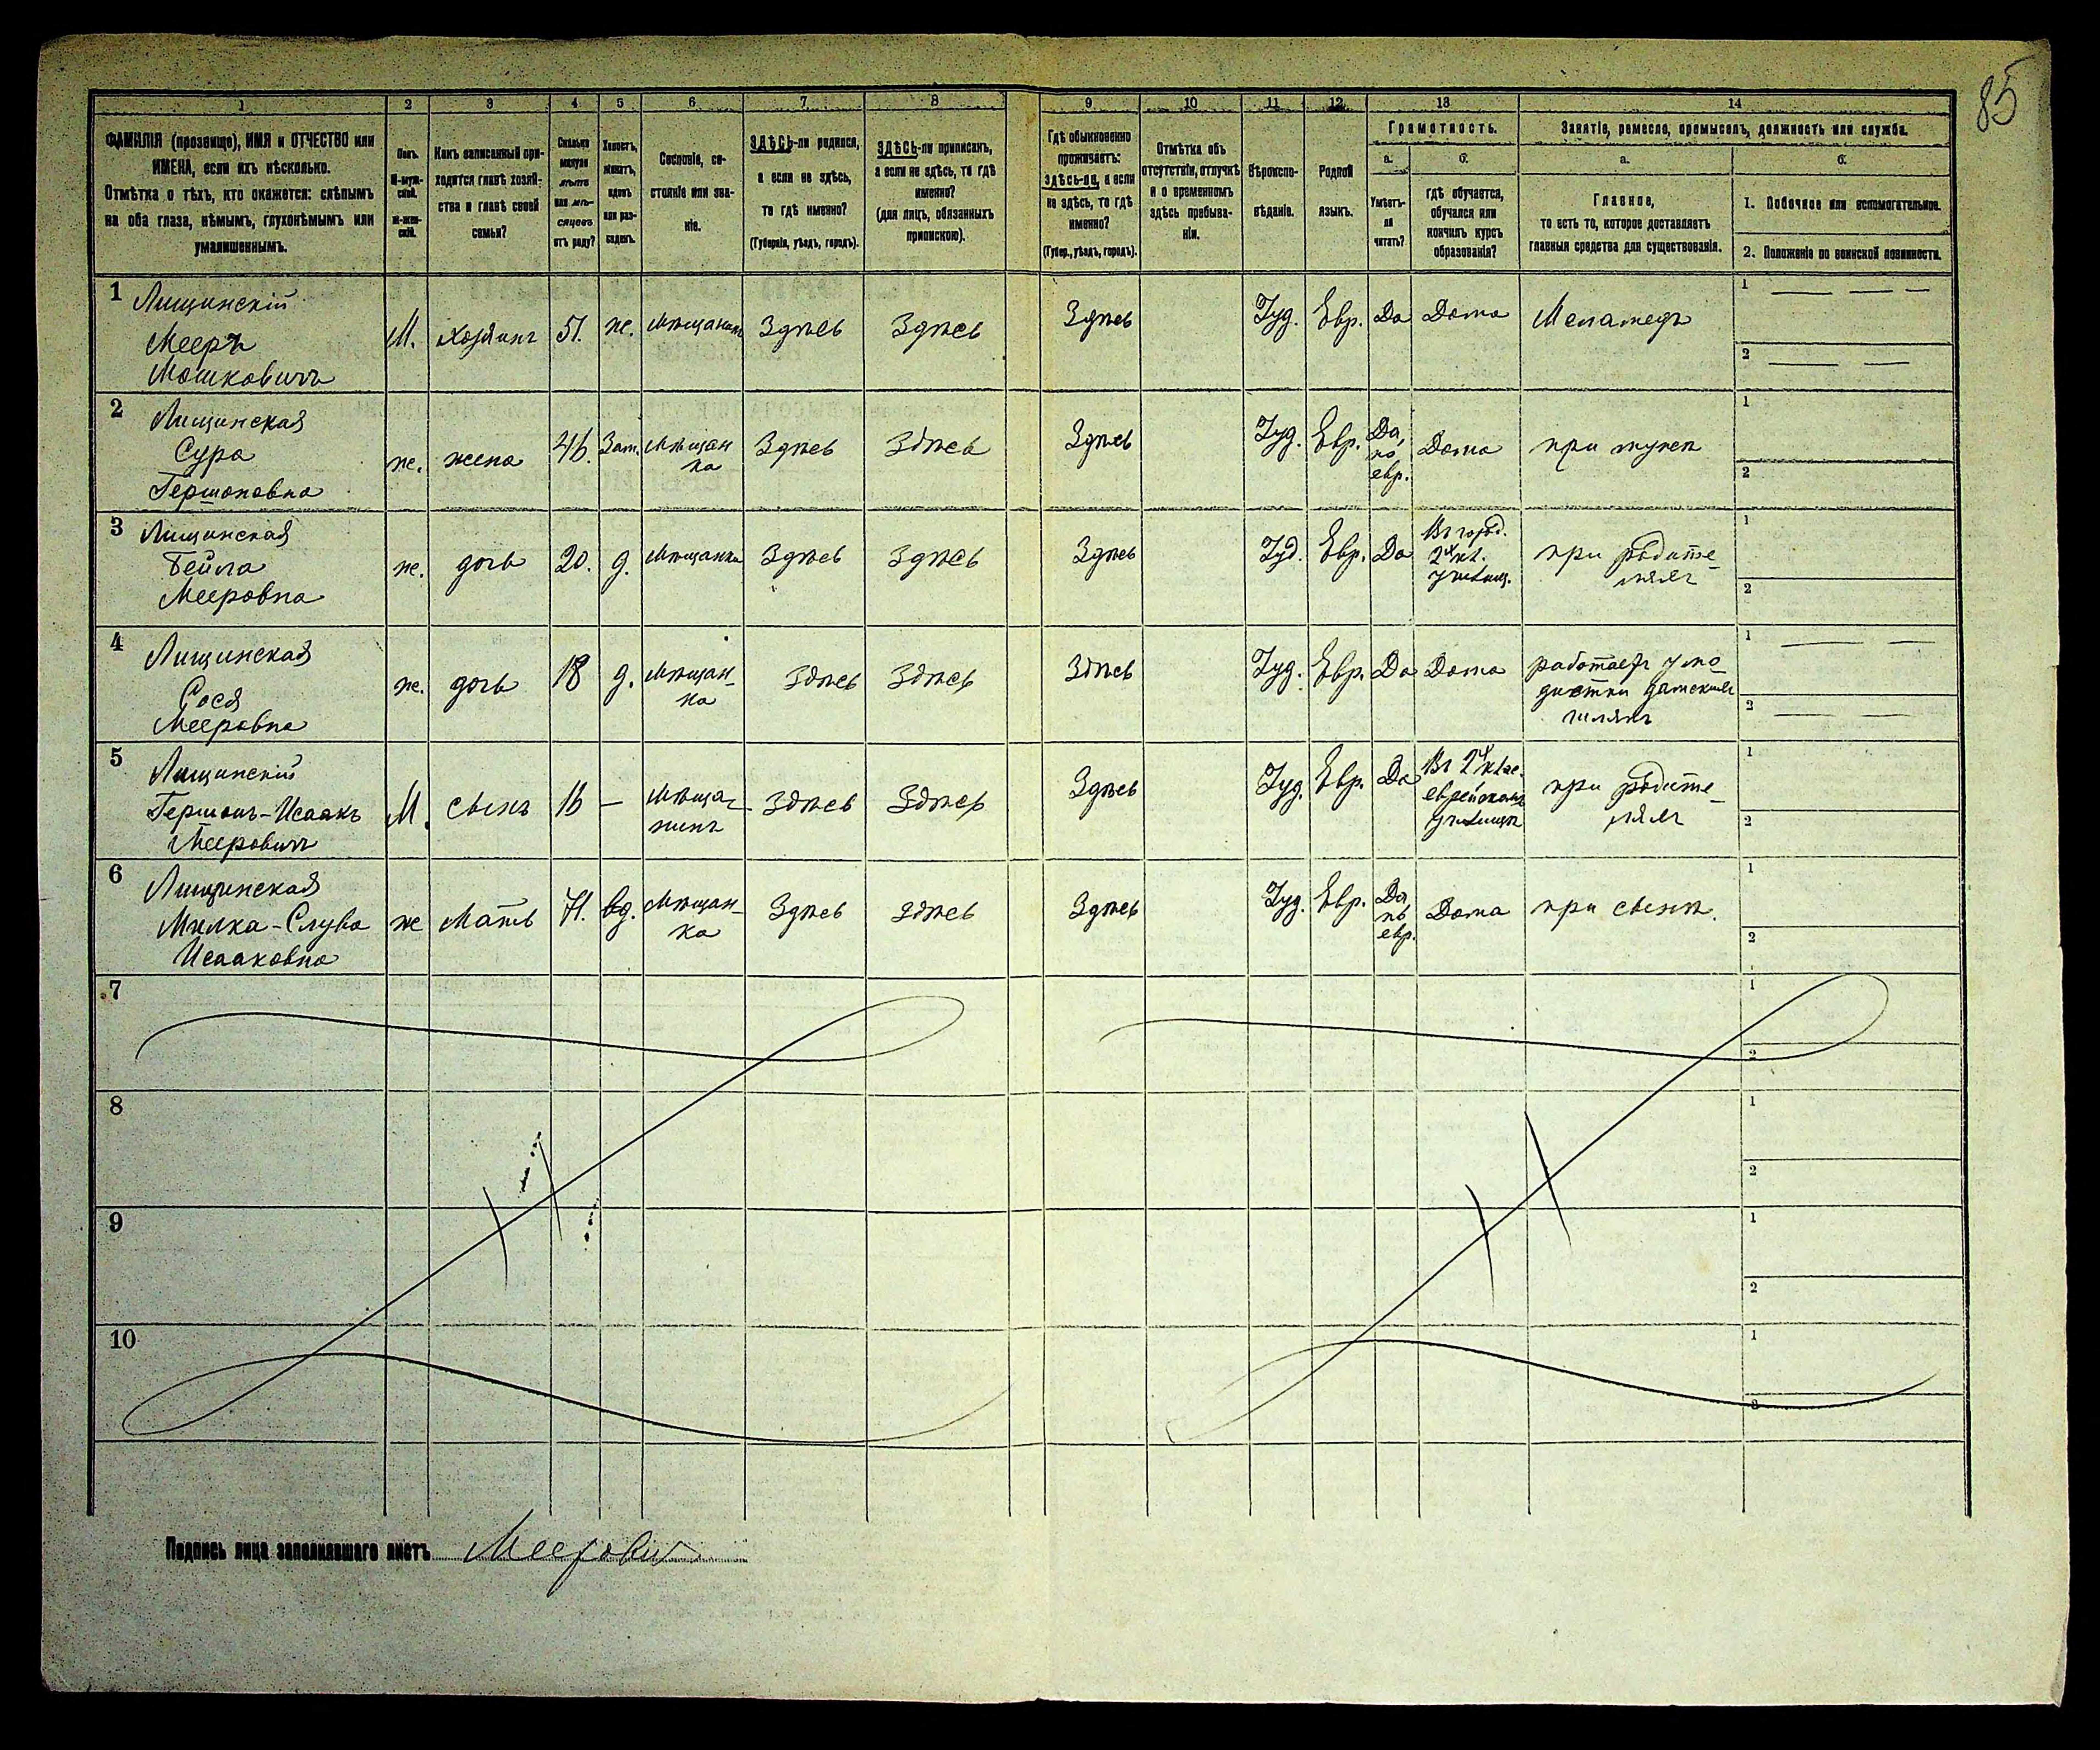 85
1 2 3 4 5 6 7 8 9 10 11 12 13 14
ФАМИЛІЯ (прозвище), ИМЯ и ОТЧЕСТВО или
ИМЕНА, если ихъ нѣсколько.
Отмѣтка о тѣхъ, кто окажется: слѣпымъ
на оба глаза, нѣмымъ, глухонѣмымъ или
умалишеннымъ.
Полъ.
М-муж-
ской.
Ж-жен-
скій.
Какъ записанный при-
ходится главѣ хозяй-
ства и главѣ своей
семьи?
Сколько
минуло
лѣтъ
или мѣ-
сяцевъ
отъ роду?
Холостъ,
женатъ,
вдовъ
или раз-
веденъ.
Сословіе, со-
стояніе или зва-
ніе.
ЗДѢСЬ-ли родился,
а если не здѣсь,
то гдѣ именно?
(Губернія, уѣздъ, городъ).
ЗДѢСЬ-ли приписанъ,
а если не здѣсь, то гдѣ
именно?
(для лицъ, обязанныхъ
припискою).
Гдѣ обыкновенно
проживаетъ:
здѣсь-ли, а если
не здѣсь, то гдѣ
именно?
(Губер., уѣздъ, городъ).
Отмѣтка объ
отсутствіи, отлучкѣ
и о временномъ
здѣсь пребыва-
ніи.
Вѣроиспо-
вѣданіе.
Родной
языкъ.
Грамотность.
а.
Умѣетъ-
ли
читать?
б.
гдѣ обучается,
обучался или
кончилъ курсъ
образованія?
Занятіе, ремесло, промыселъ, должность или служба.
а.
Главное,
то есть то, которое доставляетъ
главныя средства для существованія.
б.
1. Побочное или вспомогательное.
2. Положеніе по воинской повинности.
1 Лищинскій
Мееръ
Мошковичъ
М. хозяинъ 51. ж. мѣщанинъ Здѣсь Здѣсь Здѣсь Іуд. Евр. Да Дома Меламедъ
1
2
2 Лищинская
Сура
Гершоновна
ж. жена 46. Зам. мѣщан
ка Здѣсь Здѣсь Здѣсь Іуд. Евр. Да,
по
евр. Дома при мужѣ
1
2
3 Лищинская
Бейла
Мееровна
ж. дочь 20. д. мѣщанка Здѣсь Здѣсь Здѣсь Іуд. Евр. Да Въ город.
2х кл.
училищ. при родите-
ляхъ
1
2
4 Лищинская
Сося
Мееровна
ж. дочь 18 д. мѣщан-
ка Здѣсь Здѣсь Здѣсь Іуд. Евр. Да Дома работаетъ у мо-
дистки дамскихъ
шляпъ
1
2
5 Лищинскій
Гершонъ-Исаакъ
Мееровичъ
М. сынъ 16 — мѣща-
нинъ Здѣсь Здѣсь Здѣсь Іуд. Евр. Да Въ 2х клас.
еврейскомъ
училищѣ при родите-
ляхъ
1
2
6 Лищинская
Милка-Слува
Исааковна
ж Мать 71. вд. Мѣщан-
ка Здѣсь Здѣсь Здѣсь Іуд. Евр. Да,
по
евр. Дома при сынѣ.
1
2
7
1
2
8
1
2
9
1
2
10
1
2
Подпись лица заполнявшаго листъ Меерович